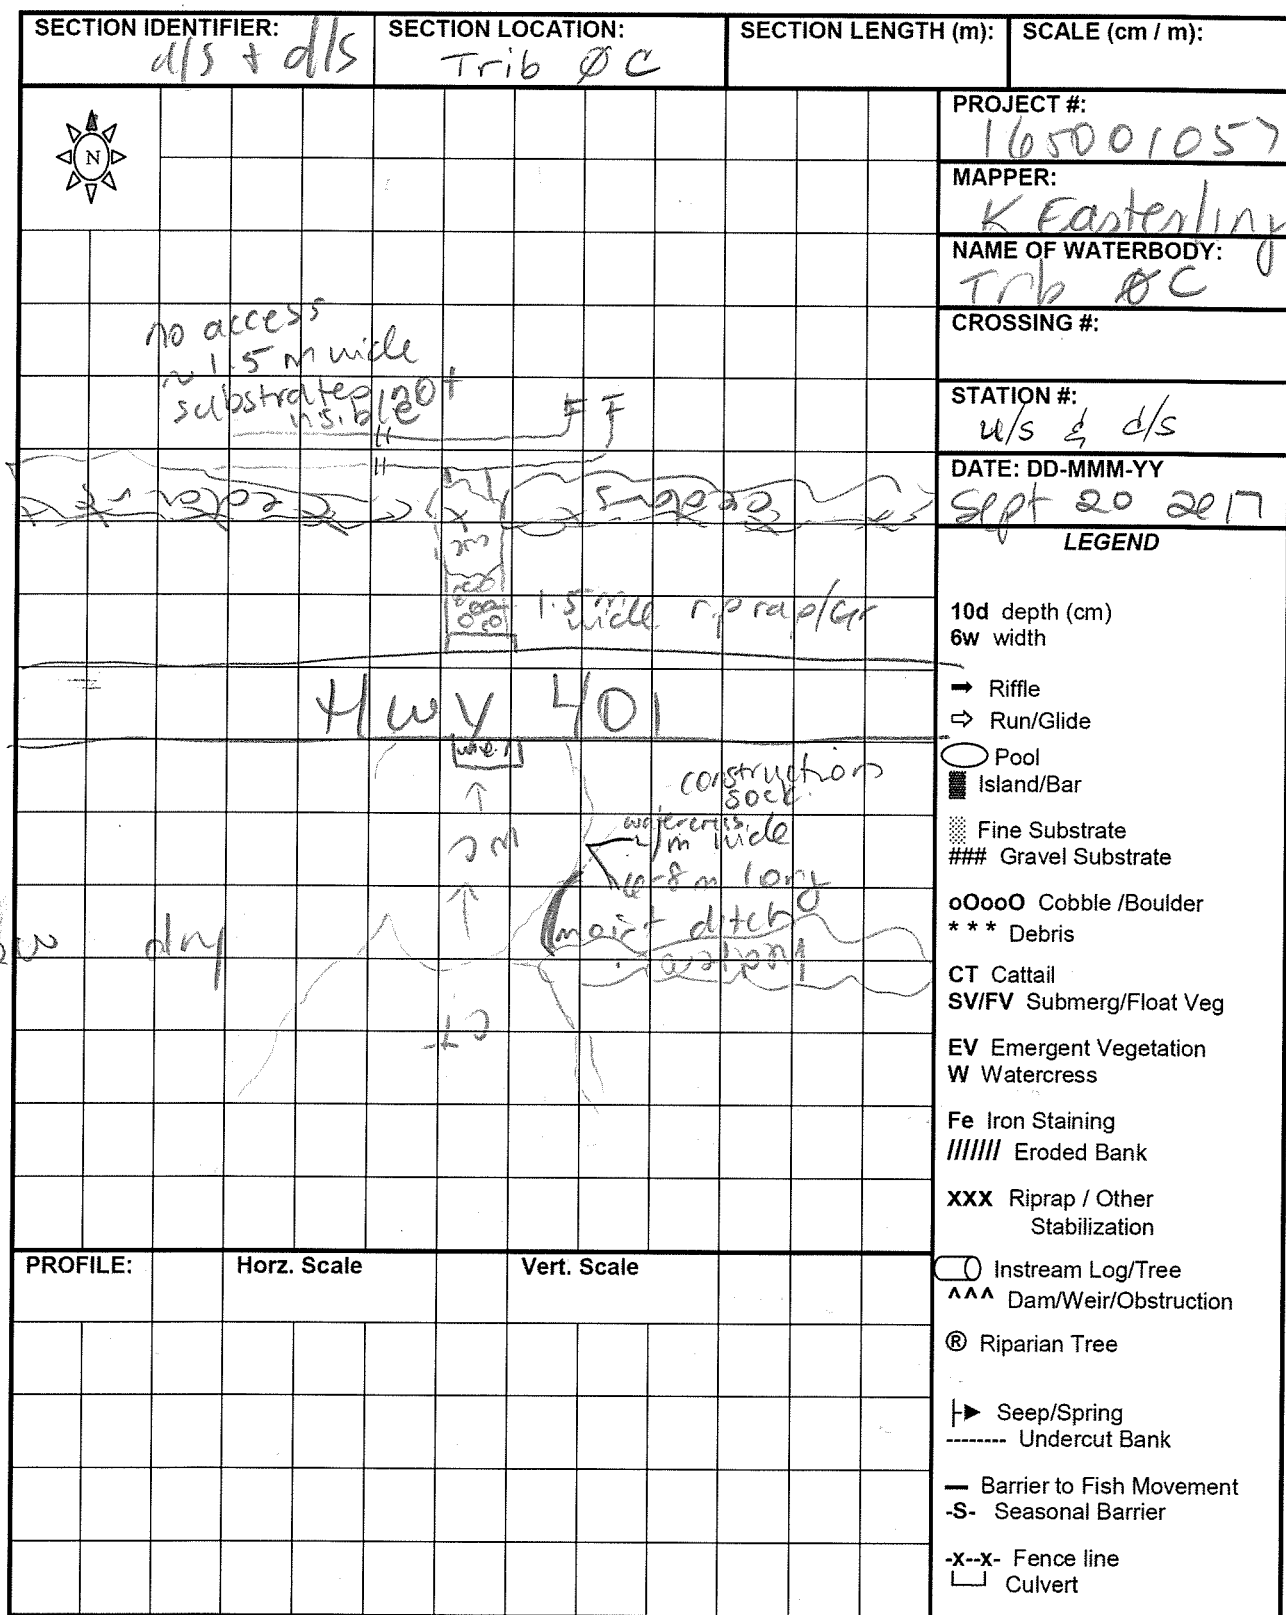 SECTION IDENTIFIER:
d/s + d/s
SECTION LOCATION:
Trib ØC
SECTION LENGTH (m):
SCALE (cm / m):
N
PROJECT #:
165001057
MAPPER:
K Easterling
NAME OF WATERBODY:
Trib ØC
CROSSING #:
STATION #:
u/s & d/s
DATE: DD-MMM-YY
Sept 20 2017
no access
~1.5 m wide
substrates not
visible
FF
cedars
1.5 m
wide riprap/Gr
Hwy 401
construction
sock
watercress
~1 m wide
6-8 m long
moist ditch
dry
CT
LEGEND
10d depth (cm)
6w width
Riffle
Run/Glide
Pool
Island/Bar
Fine Substrate
### Gravel Substrate
oOooO Cobble /Boulder
* * * Debris
CT Cattail
SV/FV Submerg/Float Veg
EV Emergent Vegetation
W Watercress
Fe Iron Staining
/////// Eroded Bank
XXX Riprap / Other
Stabilization
Instream Log/Tree
^^^ Dam/Weir/Obstruction
® Riparian Tree
Seep/Spring
-------- Undercut Bank
Barrier to Fish Movement
-S- Seasonal Barrier
-x--x- Fence line
Culvert
PROFILE:
Horz. Scale
Vert. Scale